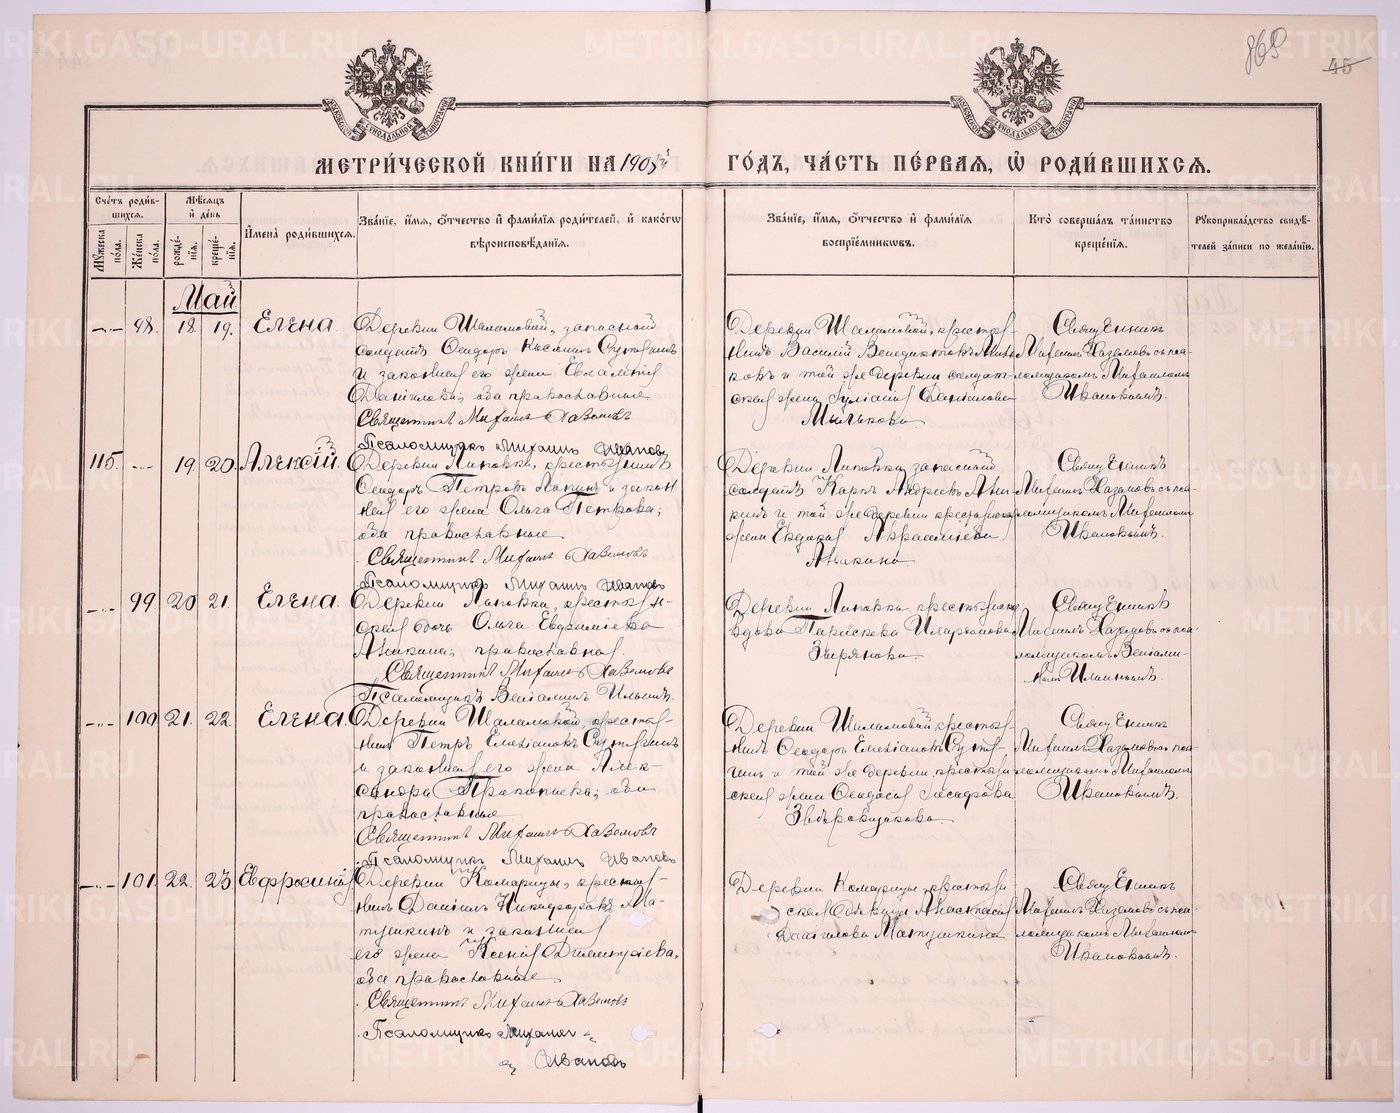 869
45
МЕТРИ́ЧЕСКОЙ КНИ́ГИ НА 1905й ГО́ДЪ, ЧА́СТЬ ПЕ́РВАЯ, Ѡ РОДИ́ВШИХСЯ.
Сче́тъ роди́вшихся.
Му́жеска по́ла.
Же́нска по́ла.
Мѣ́сяцъ и҆ де́нь
рожде́нїя.
креще́нїя.
И҆мена̀ роди́вшихся.
Зва́нїе, и҆́мя, ѻ҆́тчество и҆ фами́лїя роди́телей, и҆ како́гѡ вѣроисповѣ́данїя.
Зва́нїе, и҆́мя, ѻ҆́тчество и҆ фами́лїя воспрїе́мникѡвъ.
Кто̀ соверша́лъ та́инство креще́нїя.
Рꙋкоприкла́дство свидѣ́телей за́писи по жела́нїю.
Май
98. 18. 19. Елена.
Деревни Шаламовой, запасной
солдатъ Ѳеодоръ Сутягинъ
и законная его жена Евлампія
Данілова; оба православные
Священникъ Михаилъ Хаземовъ
Псаломщикъ Михаилъ Ивановъ
Деревни Шаламовой, кресть-
нинъ Василій Венедиктовъ
ковъ и той же деревни солдат-
ская жена Іуліанія Данилова
Мылькова
Священникъ
Михаилъ Хаземовъ съ пса-
ломщикомъ Михаиломъ
Ивановымъ.
115. 19. 20. Алексій.
Деревни Липовки, крестьянинъ
Ѳеодоръ Петровъ и закон
ная его жена Ольга Петрова;
оба православные.
Священникъ Михаилъ Хаземовъ
Псаломщикъ Михаилъ Ивановъ
Деревни Липовки запасной
солдатъ Карпъ Андреевъ Аны-
кинъ и той же деревни крестьянская
жена Евдокія
Аныкина
Священникъ
Михаилъ Хаземовъ съ пса-
ломщикомъ Михаиломъ
Ивановымъ.
99. 20. 21. Елена.
Деревни Липовки, крестьян-
ская дочь Ольга Евфиміева
Аныкина; православная.
Священникъ Михаилъ Хаземовъ
Псаломщикъ Веніаминъ Ильинъ.
Деревни Липовки, крестьянская
вдова Параскева
Зырянова.
Священникъ
Михаилъ Хаземовъ съ пса-
ломщикомъ Веніами-
номъ Ильинымъ.
100. 21. 22. Елена.
Деревни Шаламовой, кресть-
нинъ Петръ Сутягинъ
и законная его жена Алек-
сандра Прокопьева; оба
православные
Священникъ Михаилъ Хаземовъ
Псаломщикъ Михаилъ Ивановъ
Деревни Шаламовой кресть-
нинъ Ѳеодоръ Сутя-
гинъ и той же деревни крестьян
ская жена Ѳеодосія
Звѣровщикова.
Священникъ
Михаилъ Хаземовъ съ пса-
ломщикомъ Михаиломъ
Ивановымъ.
101. 22. 23. Евфросинія
Деревни Комарицы, крестья-
нинъ Даніилъ Никифоровъ Ма-
тушкинъ и законная
его жена Ксенія Димитріева,
оба православные.
Священникъ Михаилъ Хаземовъ
Псаломщикъ Михаилъ
Ивановъ
Деревни Комарицы, крестьян
ская дѣвица Анастасія
Даніилова Матушкина
Священникъ
Михаилъ Хаземовъ съ пса-
ломщикомъ Михаиломъ
Ивановымъ.
METRIKI.GASO-URAL.RU